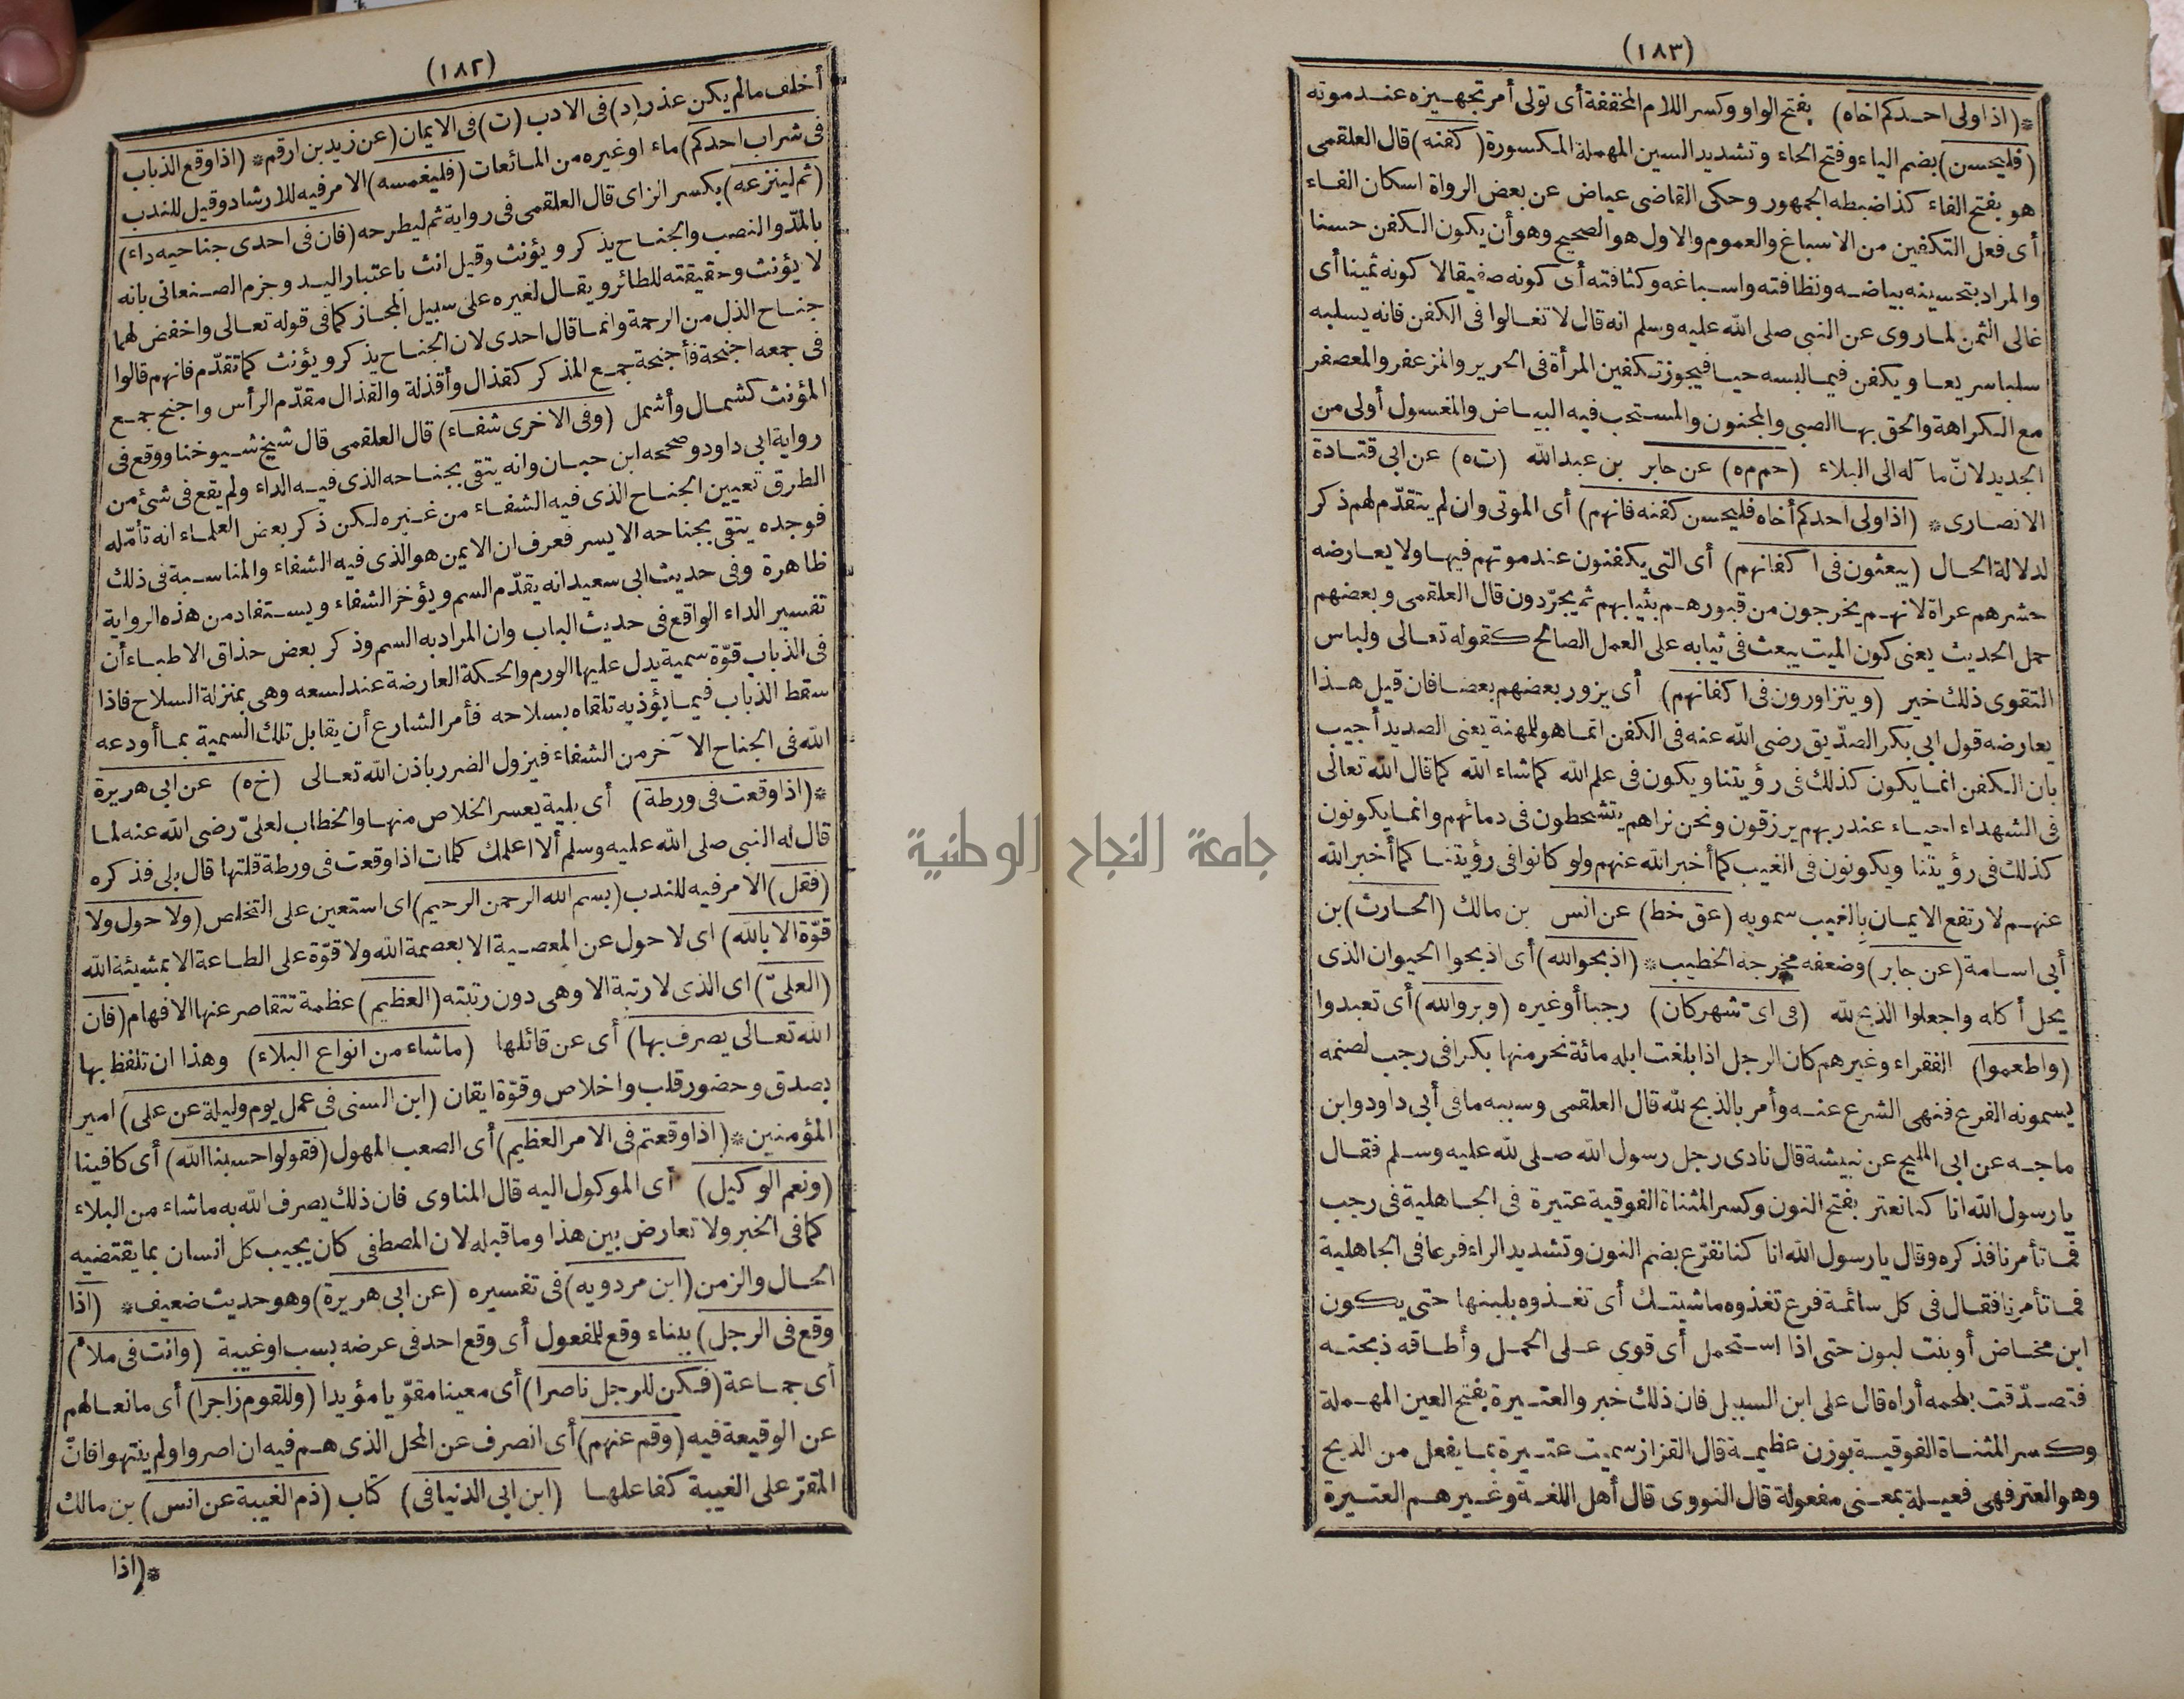 (١٨٢)
أخلف مالم يكن عذر (د) فى الادب (ت) فى الايمان (عن زيد بن ارقم* (اذا وقع الذباب
فى شراب احدكم) ماء اوغيره من المائعات (فليغمسه) الامر فيه للارشاد وقيل للندب
(ثم لينزعه) بكسر الزاى قال العلقمى فى رواية ثم ليطرحه (فان فى احدى جناحيه داء)
بالمدّ والنصب والجناح يذكر ويؤنث وقيل انث باعتبار اليد وجزم الصنعانى بانه
لا يؤنث وحقيقته للطائر ويقال لغيره على سبيل المجاز كما فى قوله تعالى واخفض لهما
جناح الذل من الرحمة وانما قال احدى لان الجناح يذكر ويؤنث كما تقدّم فانهم قالوا
فى جمعه اجنحة فأجنحة جمع المذكر كقذال وأقذلة والقذال مقدّم الرأس واجنح جمع
المؤنث كشمال وأشمل (وفى الاخرى شفاء) قال العلقمى قال شيخ شيوخنا ووقع فى
رواية ابى داود وصححه ابن حبان وانه يتقى بجناحه الذى فيه الداء ولم يقع فى شئ من
الطرق تعيين الجناح الذى فيه الشفاء من غيره لكن ذكر بعض العلماء انه تأمّله
فوجده يتقى بجناحه الايسر فعرف ان الايمن هو الذى فيه الشفاء والمناسبة فى ذلك
ظاهرة وفى حديث ابى سعيد انه يقدّم السم ويؤخر الشفاء ويستفاد من هذه الرواية
تفسير الداء الواقع فى حديث الباب وان المراد به السم وذكر بعض حذاق الاطباء أن
فى الذباب قوّة سمية يدل عليها الورم والحكة العارضة عند لسعه وهى بمنزلة السلاح فاذا
سقط الذباب فيما يؤذيه تلقاه بسلاحه فأمر الشارع أن يقابل تلك السمية بما أودعه
الله فى الجناح الآخر من الشفاء فيزول الضرر باذن الله تعالى (خ ه) عن ابى هريرة
*(اذا وقعت فى ورطة) أى بلية يعسر الخلاص منها والخطاب لعلىّ رضى الله عنه لما
قال له النبى صلى الله عليه وسلم ألا اعلمك كلمات اذا وقعت فى ورطة قلتها قال بلى فذكره
(فقل) الامر فيه للندب (بسم الله الرحمن الرحيم) اى استعين على التخلص (ولا حول ولا
قوّة الا بالله) اى لا حول عن المعصية الا بعصمة الله ولا قوّة على الطاعة الا بمشيئة الله
(العلىّ) اى الذى لا رتبة الا وهى دون رتبته (العظيم) عظمة تتقاصر عنها الافهام (فان
الله تعالى يصرف بها) أى عن قائلها (ما شاء من انواع البلاء) وهذا ان تلفظ بها
بصدق وحضور قلب واخلاص وقوّة ايقان (ابن السنى فى عمل يوم وليلة عن على) امير
المؤمنين* (اذا وقعتم فى الامر العظيم) أى الصعب المهول (فقولوا حسبنا الله) أى كافينا
(ونعم الوكيل) أى الموكول اليه قال المناوى فان ذلك يصرف الله به ما شاء من البلاء
كما فى الخبر ولا تعارض بين هذا وما قبله لان المصطفى كان يجيب كل انسان بما يقتضيه
الحال والزمن (ابن مردويه) فى تفسيره (عن ابى هريرة) وهو حديث ضعيف* (اذا
وقع فى الرجل) ببناء وقع للمفعول أى وقع احد فى عرضه بسب اوغيبة (وانت فى ملاء)
أى جماعة (فكن للرجل ناصرا) أى معينا مقوّيا مؤيدا (وللقوم زاجرا) أى مانعا لهم
عن الوقيعة فيه (وقم عنهم) أى انصرف عن المحل الذى هم فيه ان اصروا ولم ينتهوا فانّ
المقرّ على الغيبة كفاعلها (ابن ابى الدنيا فى) كتاب (ذم الغيبة عن انس) بن مالك
*(اذا
(١٨٣)
*(اذا ولى احدكم اخاه) بفتح الواو وكسر اللام المخففة أى تولى أمر تجهيزه عند موته
(فليحسن) بضم الياء وفتح الحاء وتشديد السين المهملة المكسورة (كفنه) قال العلقمى
هو بفتح الفاء كذا ضبطه الجمهور وحكى القاضى عياض عن بعض الرواة اسكان الفاء
أى فعل التكفين من الاسباغ والعموم والاول هو الصحيح وهو أن يكون الكفن حسنا
والمراد بتحسينه بياضه ونظافته واسباغه وكثافته أى كونه صفيقا لا كونه ثمينا أى
غالى الثمن لما روى عن النبى صلى الله عليه وسلم انه قال لا تغالوا فى الكفن فانه يسلبه
سلبا سريعا ويكفن فيما لبسه حيا فيجوز تكفين المرأة فى الحرير والمزعفر والمعصفر
مع الكراهة والحق بها الصبى والمجنون والمستحب فيه البياض والمغسول أولى من
الجديد لانّ مآله الى البلاء (حم م ه) عن جابر بن عبد الله (ت ه) عن ابى قتادة
الانصارى* (اذا ولى احدكم أخاه فليحسن كفنه فانهم) أى الموتى وان لم يتقدّم لهم ذكر
لدلالة الحال (يبعثون فى اكفانهم) أى التى يكفنون عند موتهم فيها ولا يعارضه
حشرهم عراة لانهم يخرجون من قبورهم بثيابهم ثم يجرّدون قال العلقمى وبعضهم
حمل الحديث يعنى كون الميت يبعث فى ثيابه على العمل الصالح كقوله تعالى ولباس
التقوى ذلك خير (ويتزاورون فى اكفانهم) أى يزور بعضهم بعضا فان قيل هذا
يعارضه قول ابى بكر الصدّيق رضى الله عنه فى الكفن انما هو للمهنة يعنى الصديد أجيب
بان الكفن انما يكون كذلك فى رؤيتنا ويكون فى علم الله كما شاء الله كما قال الله تعالى
فى الشهداء احياء عند ربهم يرزقون ونحن نراهم يتشحطون فى دمائهم وانما يكونون
كذلك فى رؤيتنا ويكونون فى الغيب كما أخبر الله عنهم ولو كانوا فى رؤيتنا كما أخبر الله
عنهم لارتفع الايمان بالغيب سمويه (عق خط) عن انس بن مالك (الحارث) بن
أبى اسامة (عن جابر) وضعفه مخرجه الخطيب* (اذبحوا لله) أى اذبحوا الحيوان الذى
يحل أكله واجعلوا الذبح لله (فى اىّ شهر كان) رجبا أو غيره (وبروا لله) أى تعبدوا
(واطعموا) الفقراء وغيرهم كان الرجل اذا بلغت ابله مائة نحر منها بكرا فى رجب لصنمه
يسمونه الفرع فنهى الشرع عنه وأمر بالذبح لله قال العلقمى وسببه ما فى أبى داود وابن
ماجه عن ابى المليح عن نبيشة قال نادى رجل رسول الله صلى لله عليه وسلم فقال
يا رسول الله انا كنا نعتر بفتح النون وكسر المثناة الفوقية عتيرة فى الجاهلية فى رجب
فما تأمرنا فذكره وقال يا رسول الله انا كنا نفرّع بضم النون وتشديد الراء فرعا فى الجاهلية
فما تأمرنا فقال فى كل سائمة فرع تغذوه ماشيتك أى تغذوه بلبنها حتى يكون
ابن مخاض أو بنت لبون حتى اذا استحمل أى قوى على الحمل وأطاقه ذبحته
فتصدّقت بلحمه أراه قال على ابن السبيل فان ذلك خير والعتيرة بفتح العين المهملة
وكسر المثناة الفوقية بوزن عظيمة قال القزاز سميت عتيرة بما يفعل من الذبح
وهو العتر فهى فعيلة بمعنى مفعولة قال النووى قال أهل اللغة وغيرهم العتيرة
جامعة النجاح الوطنية